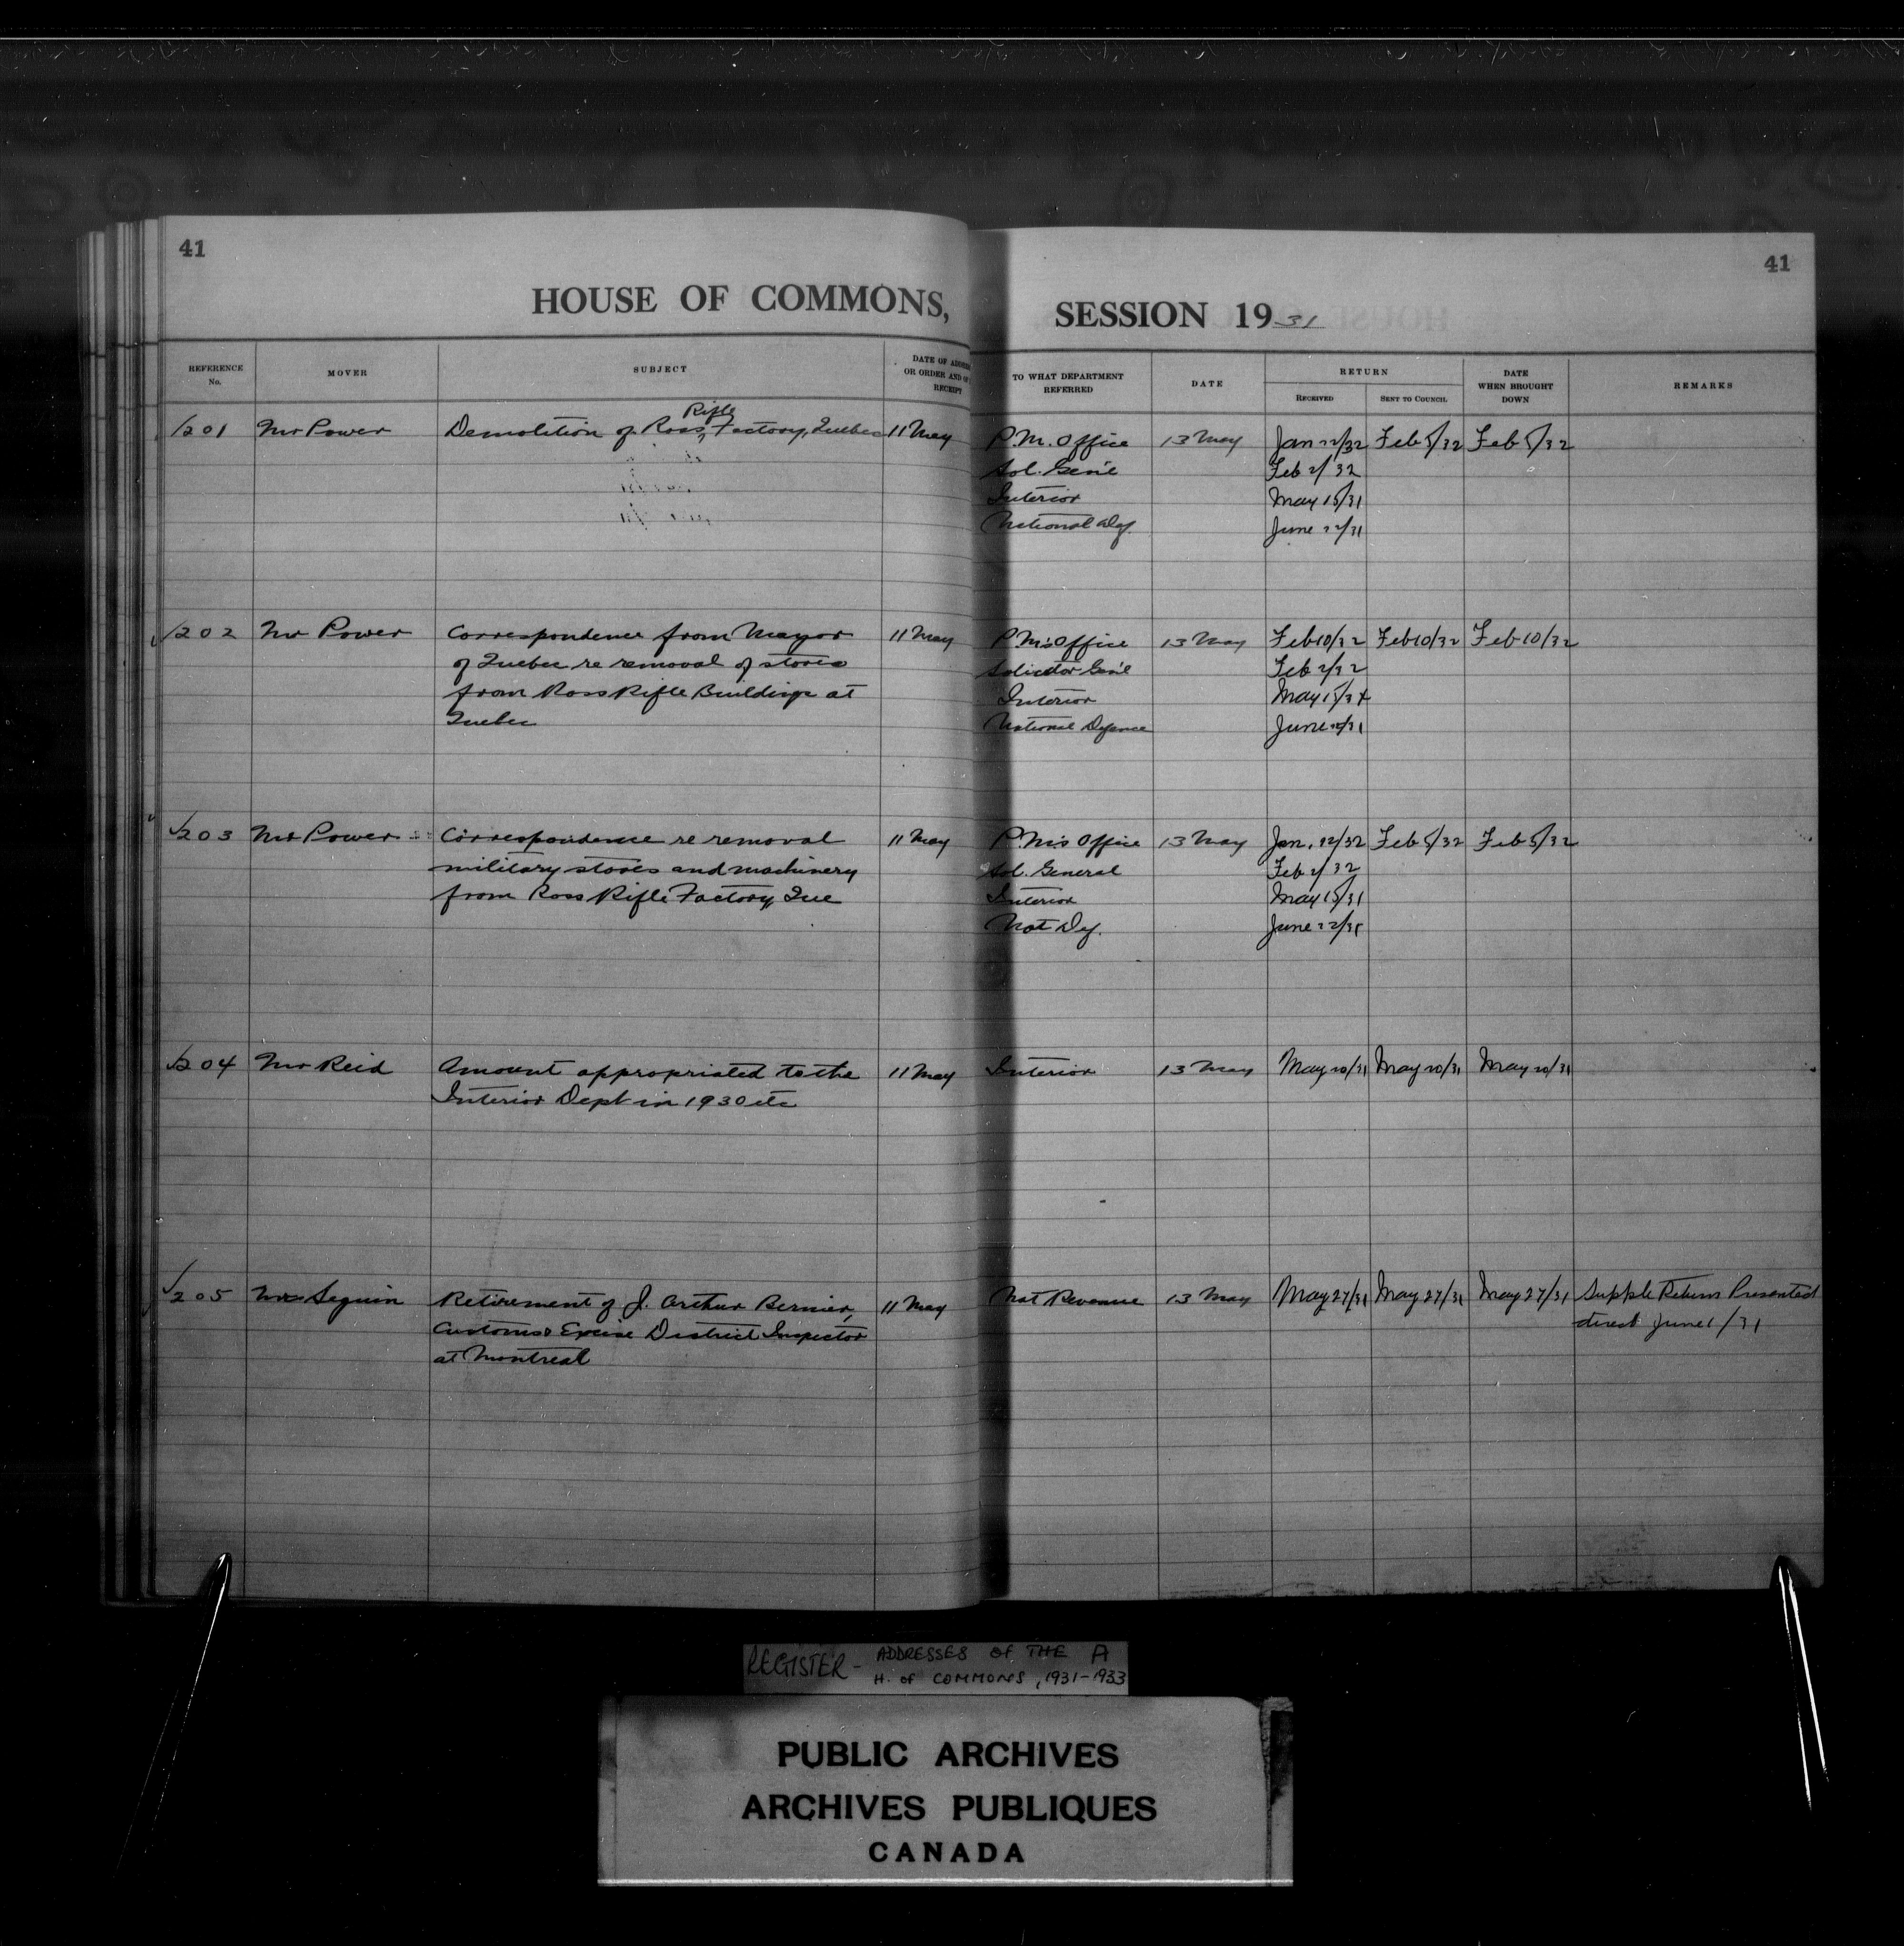 41
41
HOUSE OF COMMONS,
SESSION 1931
REFERENCE No.
MOVER
SUBJECT
DATE OF ADDRESS OR ORDER AND OF RECEIPT
TO WHAT DEPARTMENT REFERRED
DATE
RETURN
RECEIVED
SENT TO COUNCIL
DATE WHEN BROUGHT DOWN
REMARKS
201 Mr Power Demolition of Ross Rifle Factory, Quebec 11 May P.M. Office 13 May Jan 22/32 Feb 5/32 Feb 5/32
Sol. Gen'l Feb 2/32
Interior May 15/31
National Def. June 22/31
202 Mr Power Correspondence from Mayor 11 May P.M's Office 13 May Feb 10/32 Feb 10/32 Feb 10/32
of Quebec re removal of stores Solicitor Gen'l Feb 2/32
from Ross Rifle Buildings at Interior May 15/31
Quebec National Defence June 22/31
203 Mr Power Correspondence re removal 11 May P.M's Office 13 May Jan. 22/32 Feb 5/32 Feb 5/32
military stores and machinery Sol. General Feb 2/32
from Ross Rifle Factory, Que Interior May 15/31
Nat Def. June 22/31
204 Mr Reid Amount appropriated to the 11 May Interior 13 May May 20/31 May 20/31 May 20/31
Interior Dept in 1930 etc
205 Mr Seguin Retirement of J. Arthur Bernier, 11 May Nat Revenue 13 May May 27/31 May 27/31 May 27/31 Supple Return Presented
Customs & Excise District Inspector direct June 1/31
at Montreal
REGISTER - ADDRESSES OF THE A
H. of COMMONS, 1931-1933
PUBLIC ARCHIVES
ARCHIVES PUBLIQUES
CANADA